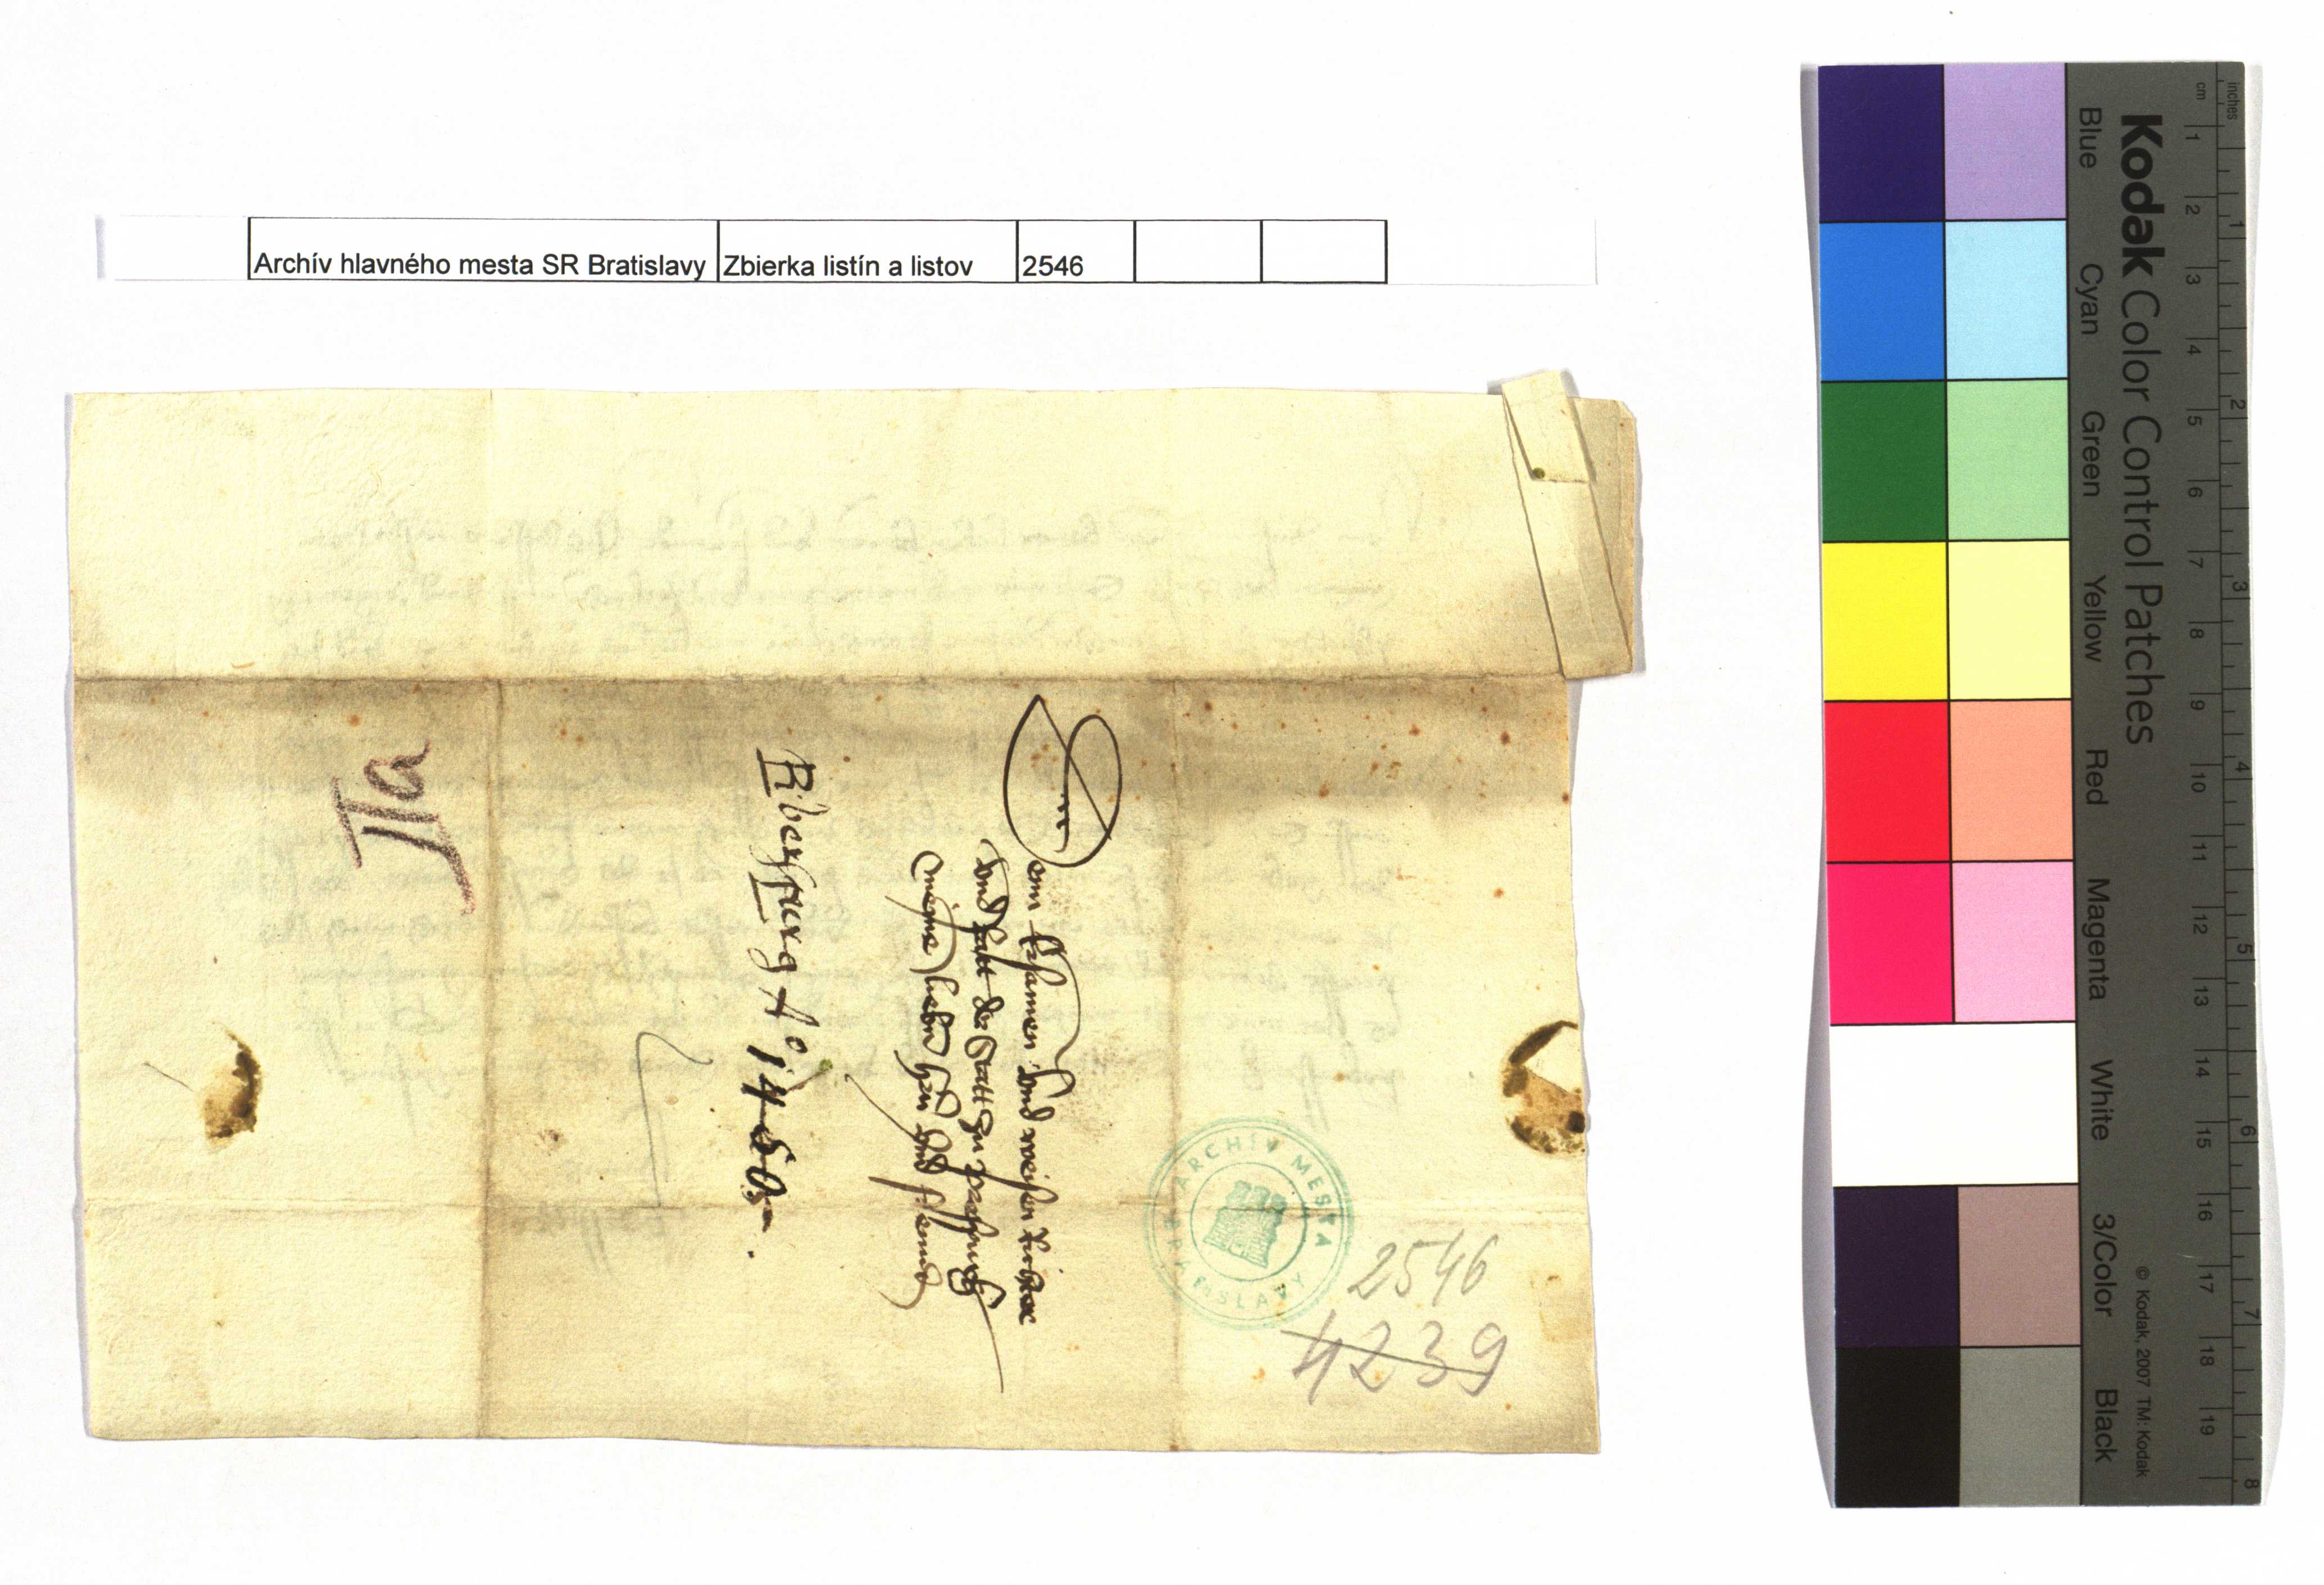 Archív hlavného mesta SR Bratislavy Zbierka listín a listov 2546
Den
Ersamen vnd weisen Richter
vnd Rat der Statt zu prespurg
meynen lieben hern vnd frewnd
A° 1450.
IIa
ARCHÍV MESTA BRATISLAVY
2546
4239
Kodak Color Control Patches
inches
cm
1 2 3 4 5 6 7 8 9 10 11 12 13 14 15 16 17 18 19
1 2 3 4 5 6 7 8
Blue Cyan Green Yellow Red Magenta White 3/Color Black
© Kodak, 2007 TM: Kodak